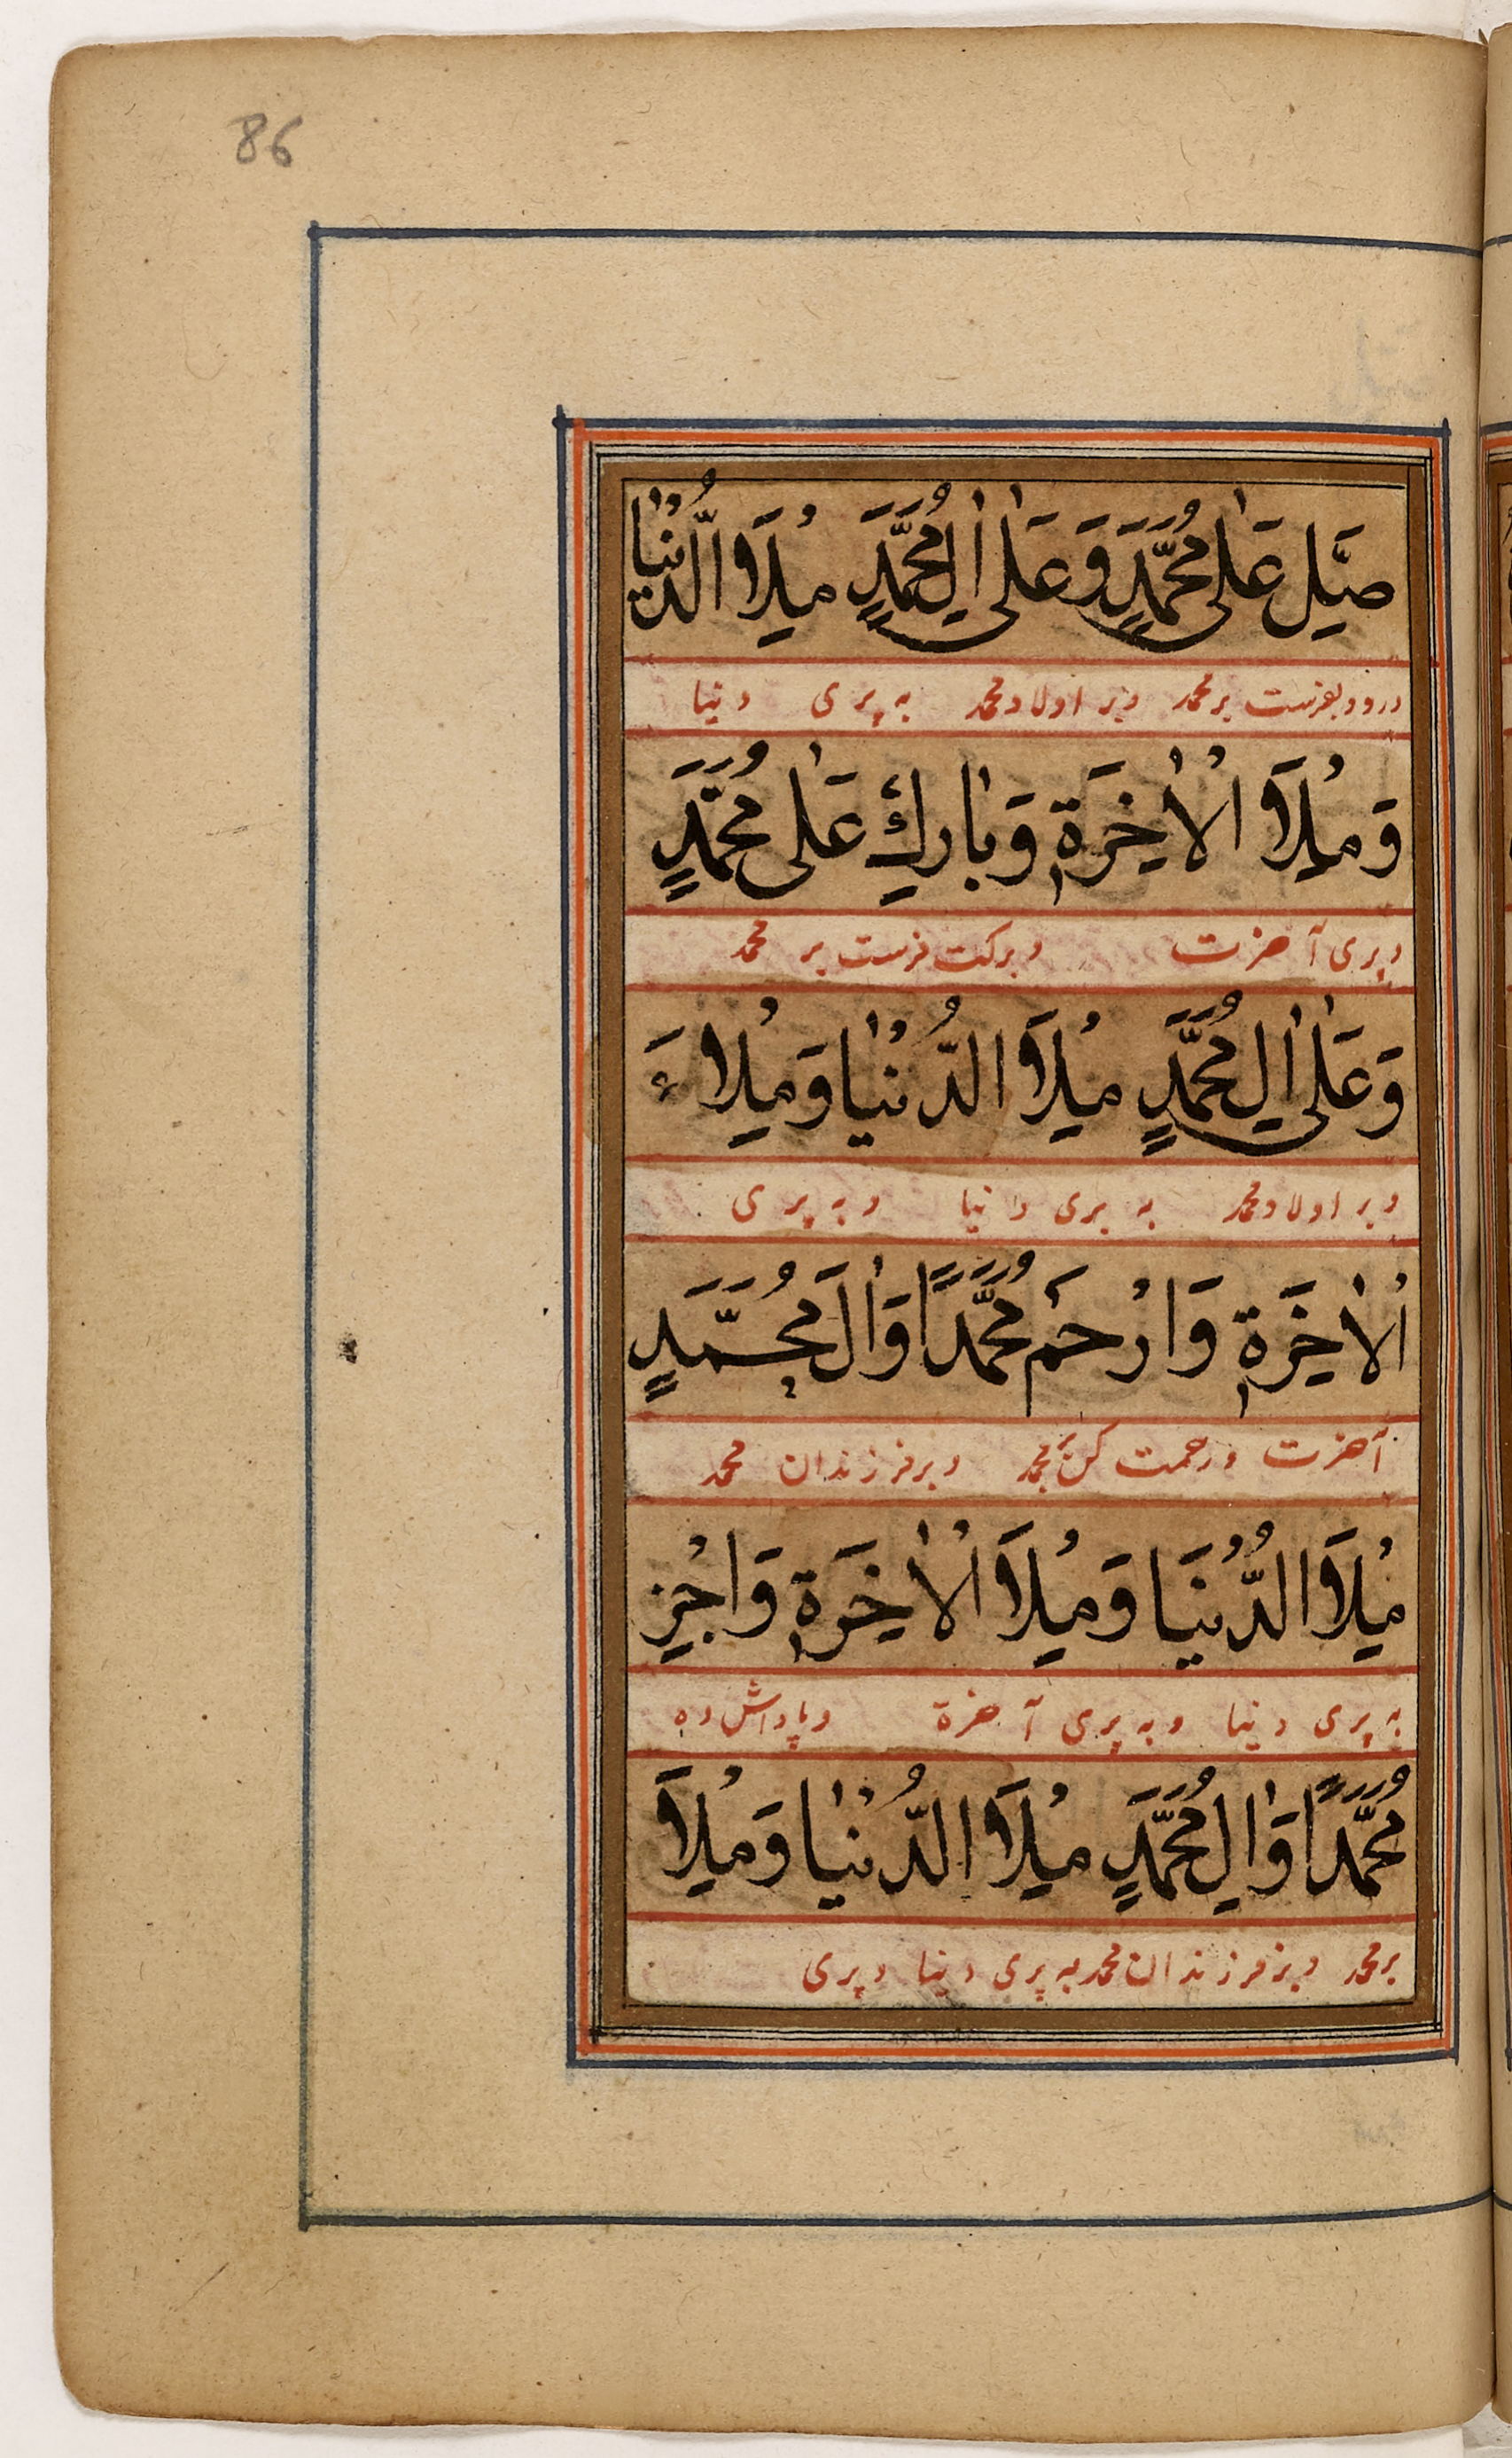 86
صَلِّ عَلٰى مُحَمَّدٍ وَعَلٰى اٰلِ مُحَمَّدٍ مِلْاَ الدُّنْيٰا
درود بفرست بر محمد و بر اولاد محمد به پری دنیا
وَ مِلْاَ الْاٰخِرَةِ وَبٰارِكْ عَلٰى مُحَمَّدٍ
و پری آخرت و برکت فرست بر محمد
وَعَلٰى اٰلِ مُحَمَّدٍ مِلْاَ الدُّنْيٰا وَمِلْاءَ
و بر اولاد محمد به پری دنیا و به پری
الْاٰخِرَةِ وَارْحَمْ مُحَمَّدًا وَاٰلَ مُحَمَّدٍ
آخرت و رحمت کن بر محمد و بر فرزندان محمد
مِلْاَ الدُّنْيَا وَمِلْاَ الْاٰخِرَةِ وَاجْزِ
به پری دنیا و به پری آخرة و پاداش ده
مُحَمَّدًا وَاٰلِ مُحَمَّدٍ مِلْاَ الدُّنْيٰا وَمِلْاَ
بر محمد و بر فرزندان محمد به پری دنیا و پری